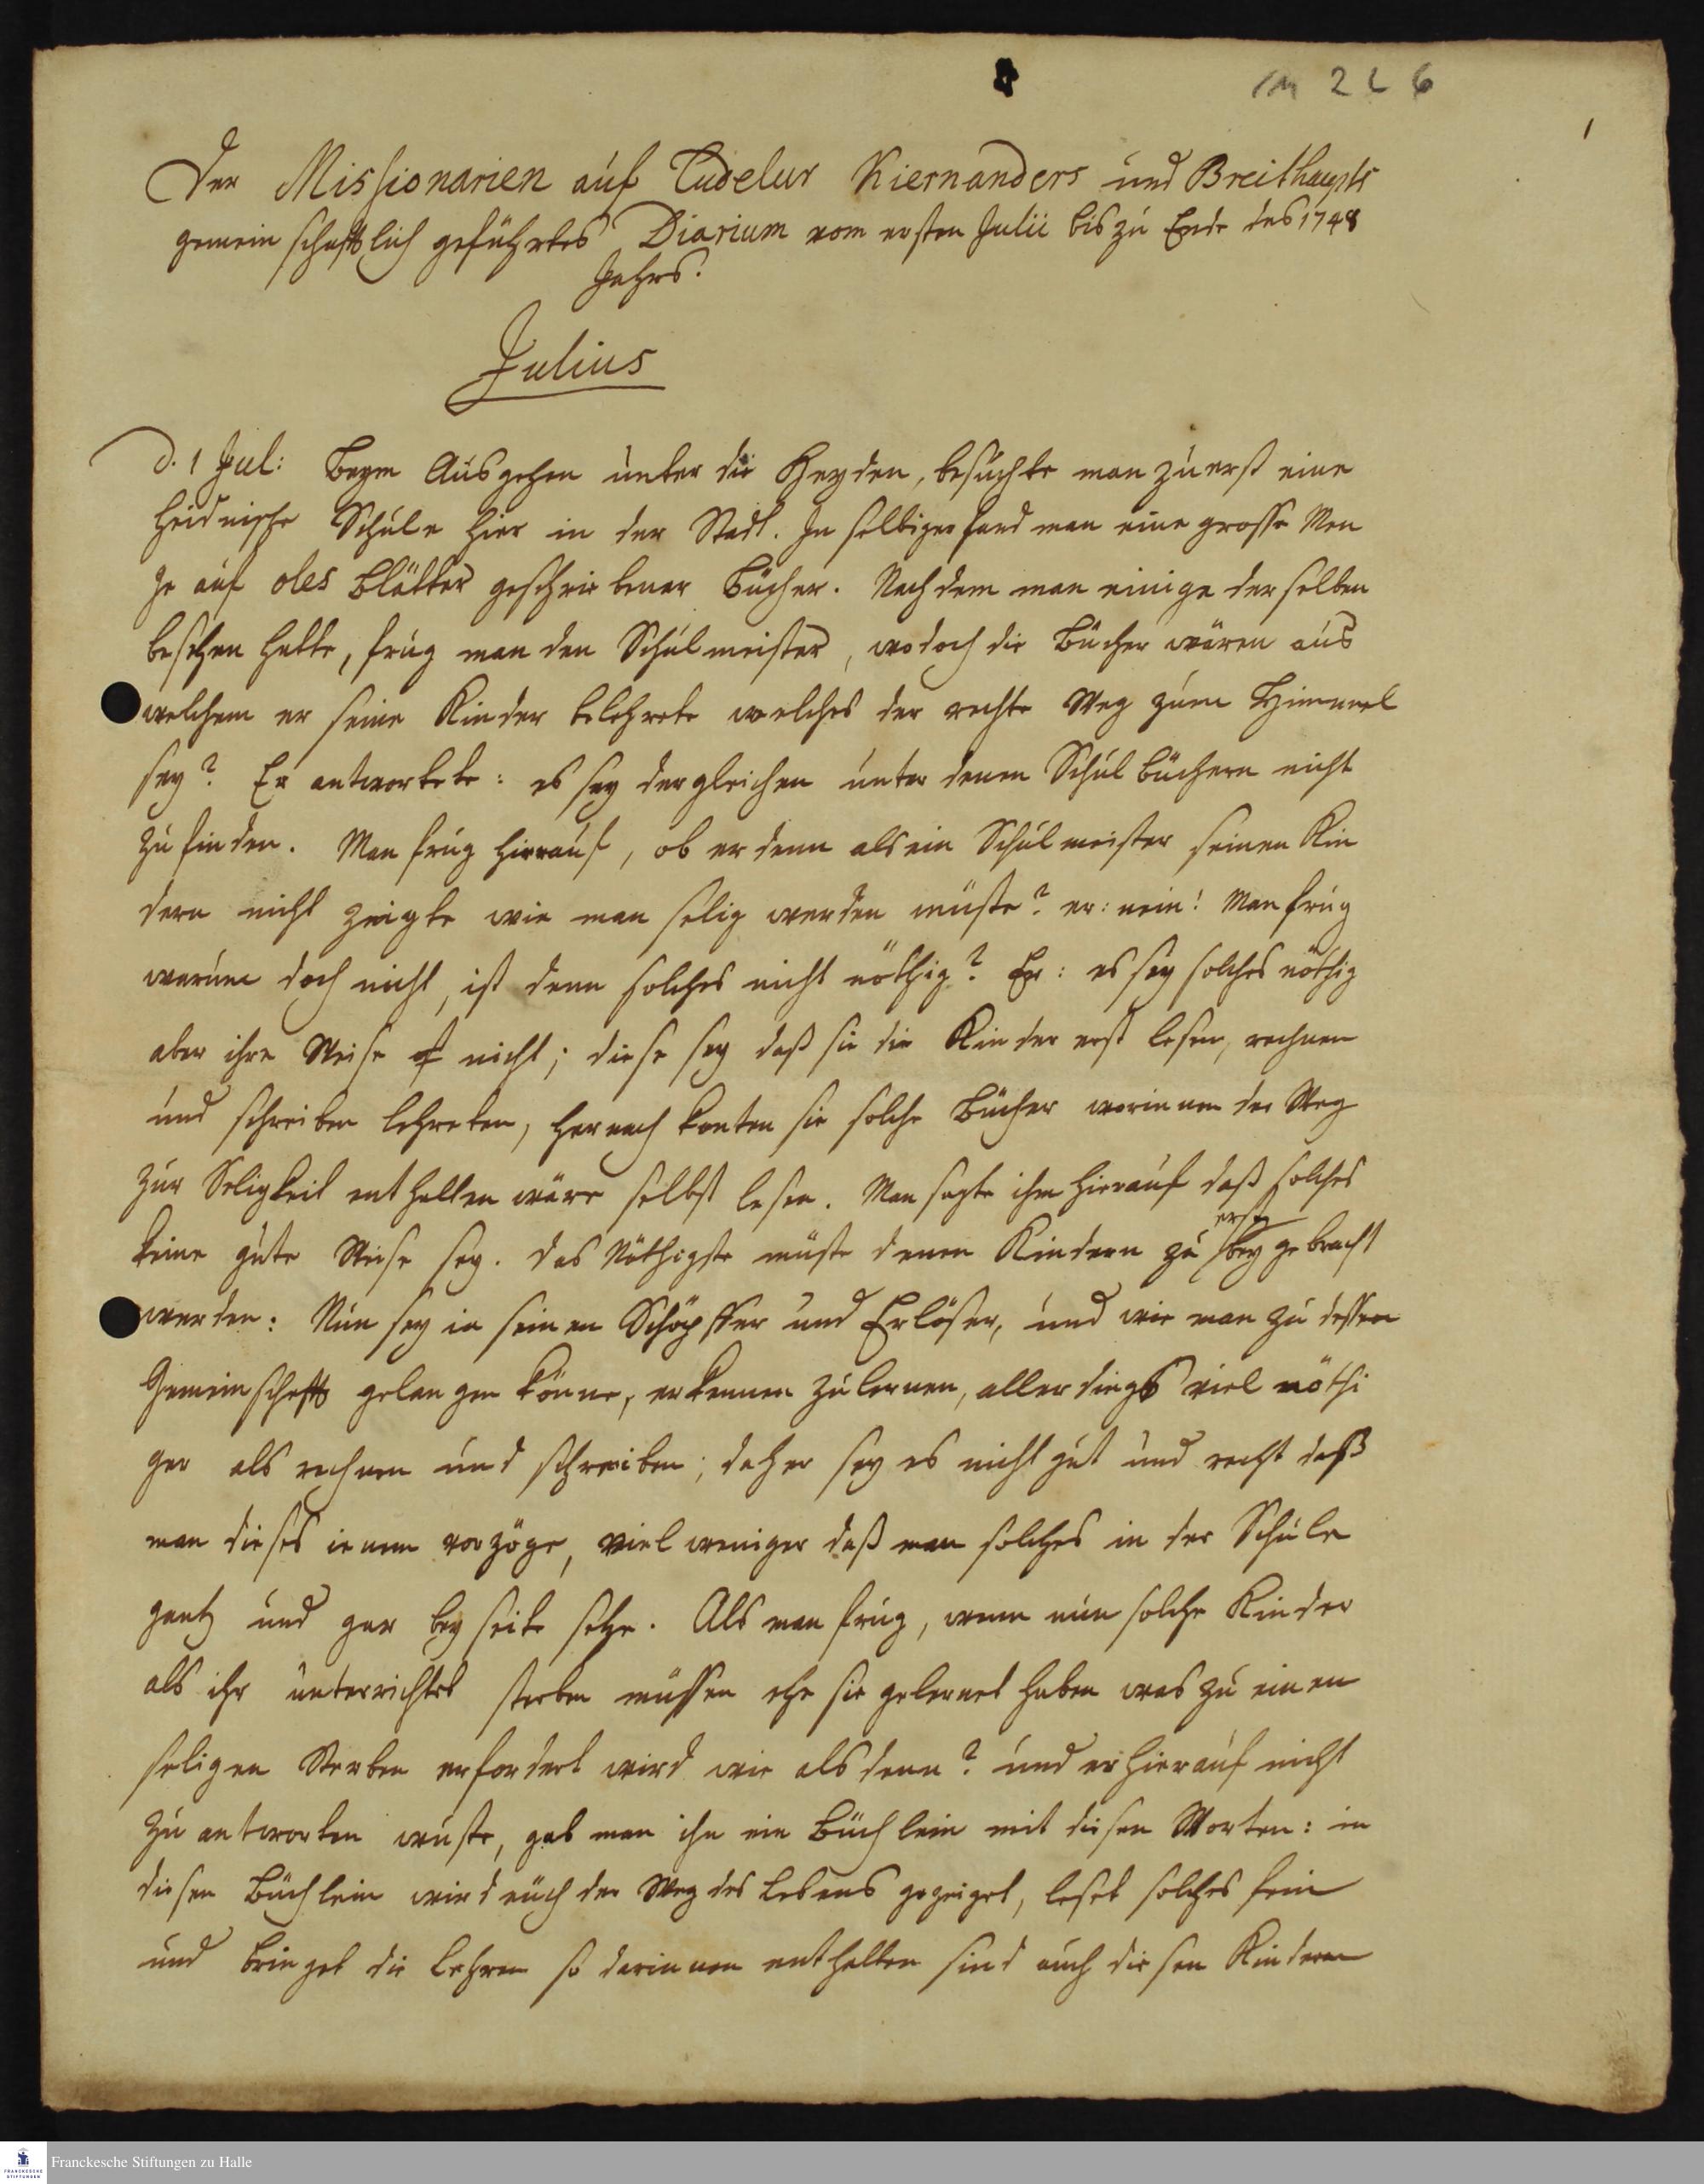 1M 2 L 6
1
Der Missionarien auf Cudelur Kiernanders und Breithaupts
gemeinschafftlich geführtes Diarium vom ersten Julii bis zu Ende des 1748
Jahrs.
Julius
D. 1 Jul: Beym Ausgehen unter die Heyden, besuchte man zuerst eine
heidnische Schule hier in der Stadt. In selbiger fand man eine grosse Men
ge auf oles Blätter geschriebener Bücher. Nachdem man einige derselben
besehen hatte, frug man den Schulmeister, wo doch die Bücher wären aus
welchem er seine Kinder belehrete welches der rechte Weg zum Himmel
sey? Er antwortete: es sey dergleichen unter denen Schulbüchern nicht
zu finden. Man frug hierauf, ob er denn als ein Schulmeister seinen Kin
dern nicht zeigte wie man selig werden müste? er: nein! Man frug
warum doch nicht, ist denn solches nicht nöthig? Er: es sey solches nöthig
aber ihre Weise nicht; diese sey daß sie die Kinder erst lesen, rechnen
und schreiben lehreten, hernach konten sie solche Bücher worinnen der Weg
zur Seligkeit enthalten wäre selbst lesen. Man sagte ihm hierauf daß solches
keine gute Weise sey. Das Nöthigste müste denen Kindern zu erst beygebracht
werden: Nun sey ia seinen Schöpffer und Erlöser, und wie man zu dessen
Gemeinschafft gelangen könne, erkennen zu lernen, allerdings viel nöthi
ger als rechnen und schreiben; daher sey es nicht gut und recht daß
man dieses ienem vorzöge, viel weniger daß man solches in der Schule
gantz und gar bey seite setze. Als man frug, wenn nun solche Kinder
als ihr unterrichtet sterben müssen ehe sie gelernet haben was zu einem
seligen Sterben erfordert wird wie alsdenn? und er hierauf nicht
zu antworten wuste, gab man ihm ein Büchlein mit diesen Worten: in
diesen Büchlein wird euch der Weg des Lebens gezeiget, leset solches fein
und bringet die Lehren so darinnen enthalten sind auch diesen Kindern
Franckesche Stiftungen zu Halle